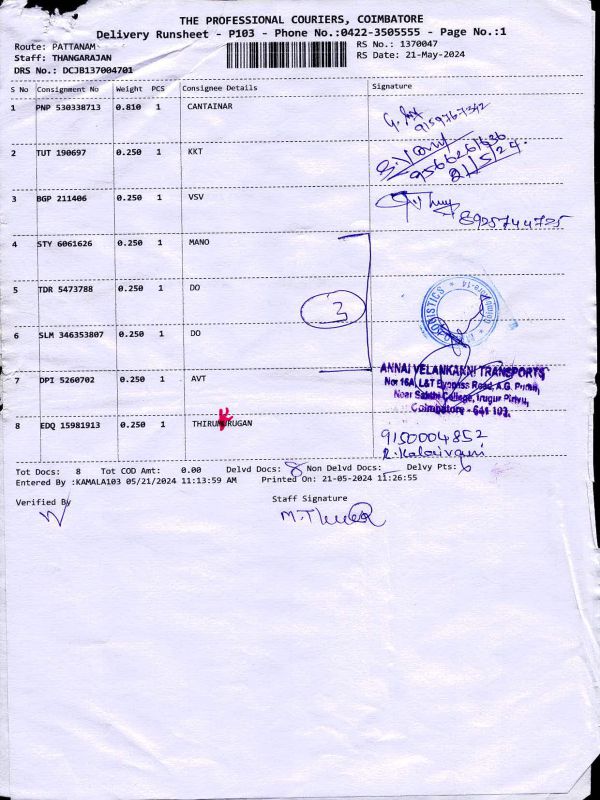 THE PROFESSIONAL COURIERS, COIMBATORE
Delivery Runsheet - P103 - Phone No.:0422-3505555 - Page No.:1
Route: PATTANAM
RS No.: 1370047
Staff: THANGARAJAN
RS Date: 21-May-2024
DRS No.: DCJB137004701
S No Consignment No Weight PCS Consignee Details Signature
1 PNP 530338713 0.810 1 CANTAINAR
9159767342
2 TUT 190697 0.250 1 KKT
9566261636
21/5/24
3 BGP 211406 0.250 1 VSV
8925744725
4 STY 6061626 0.250 1 MANO
5 TDR 5473788 0.250 1 DO
3
6 SLM 346353807 0.250 1 DO
LOGISTICS
ANNAI VELANKANNI TRANSPORTS
7 DPI 5260702 0.250 1 AVT
No: 16A, L&T Byepass Road, A.G. Pudur,
Near Sakthi College, Irugur Pirivu,
Coimbatore - 641 103.
8 EDQ 15981913 0.250 1 THIRUMURUGAN
9150004852
R. Kalaivani
Tot Docs: 8 Tot COD Amt: 0.00 Delvd Docs: 8 Non Delvd Docs: - Delvy Pts: 6
Entered By :KAMALA103 05/21/2024 11:13:59 AM Printed On: 21-05-2024 11:26:55
Verified By
Staff Signature